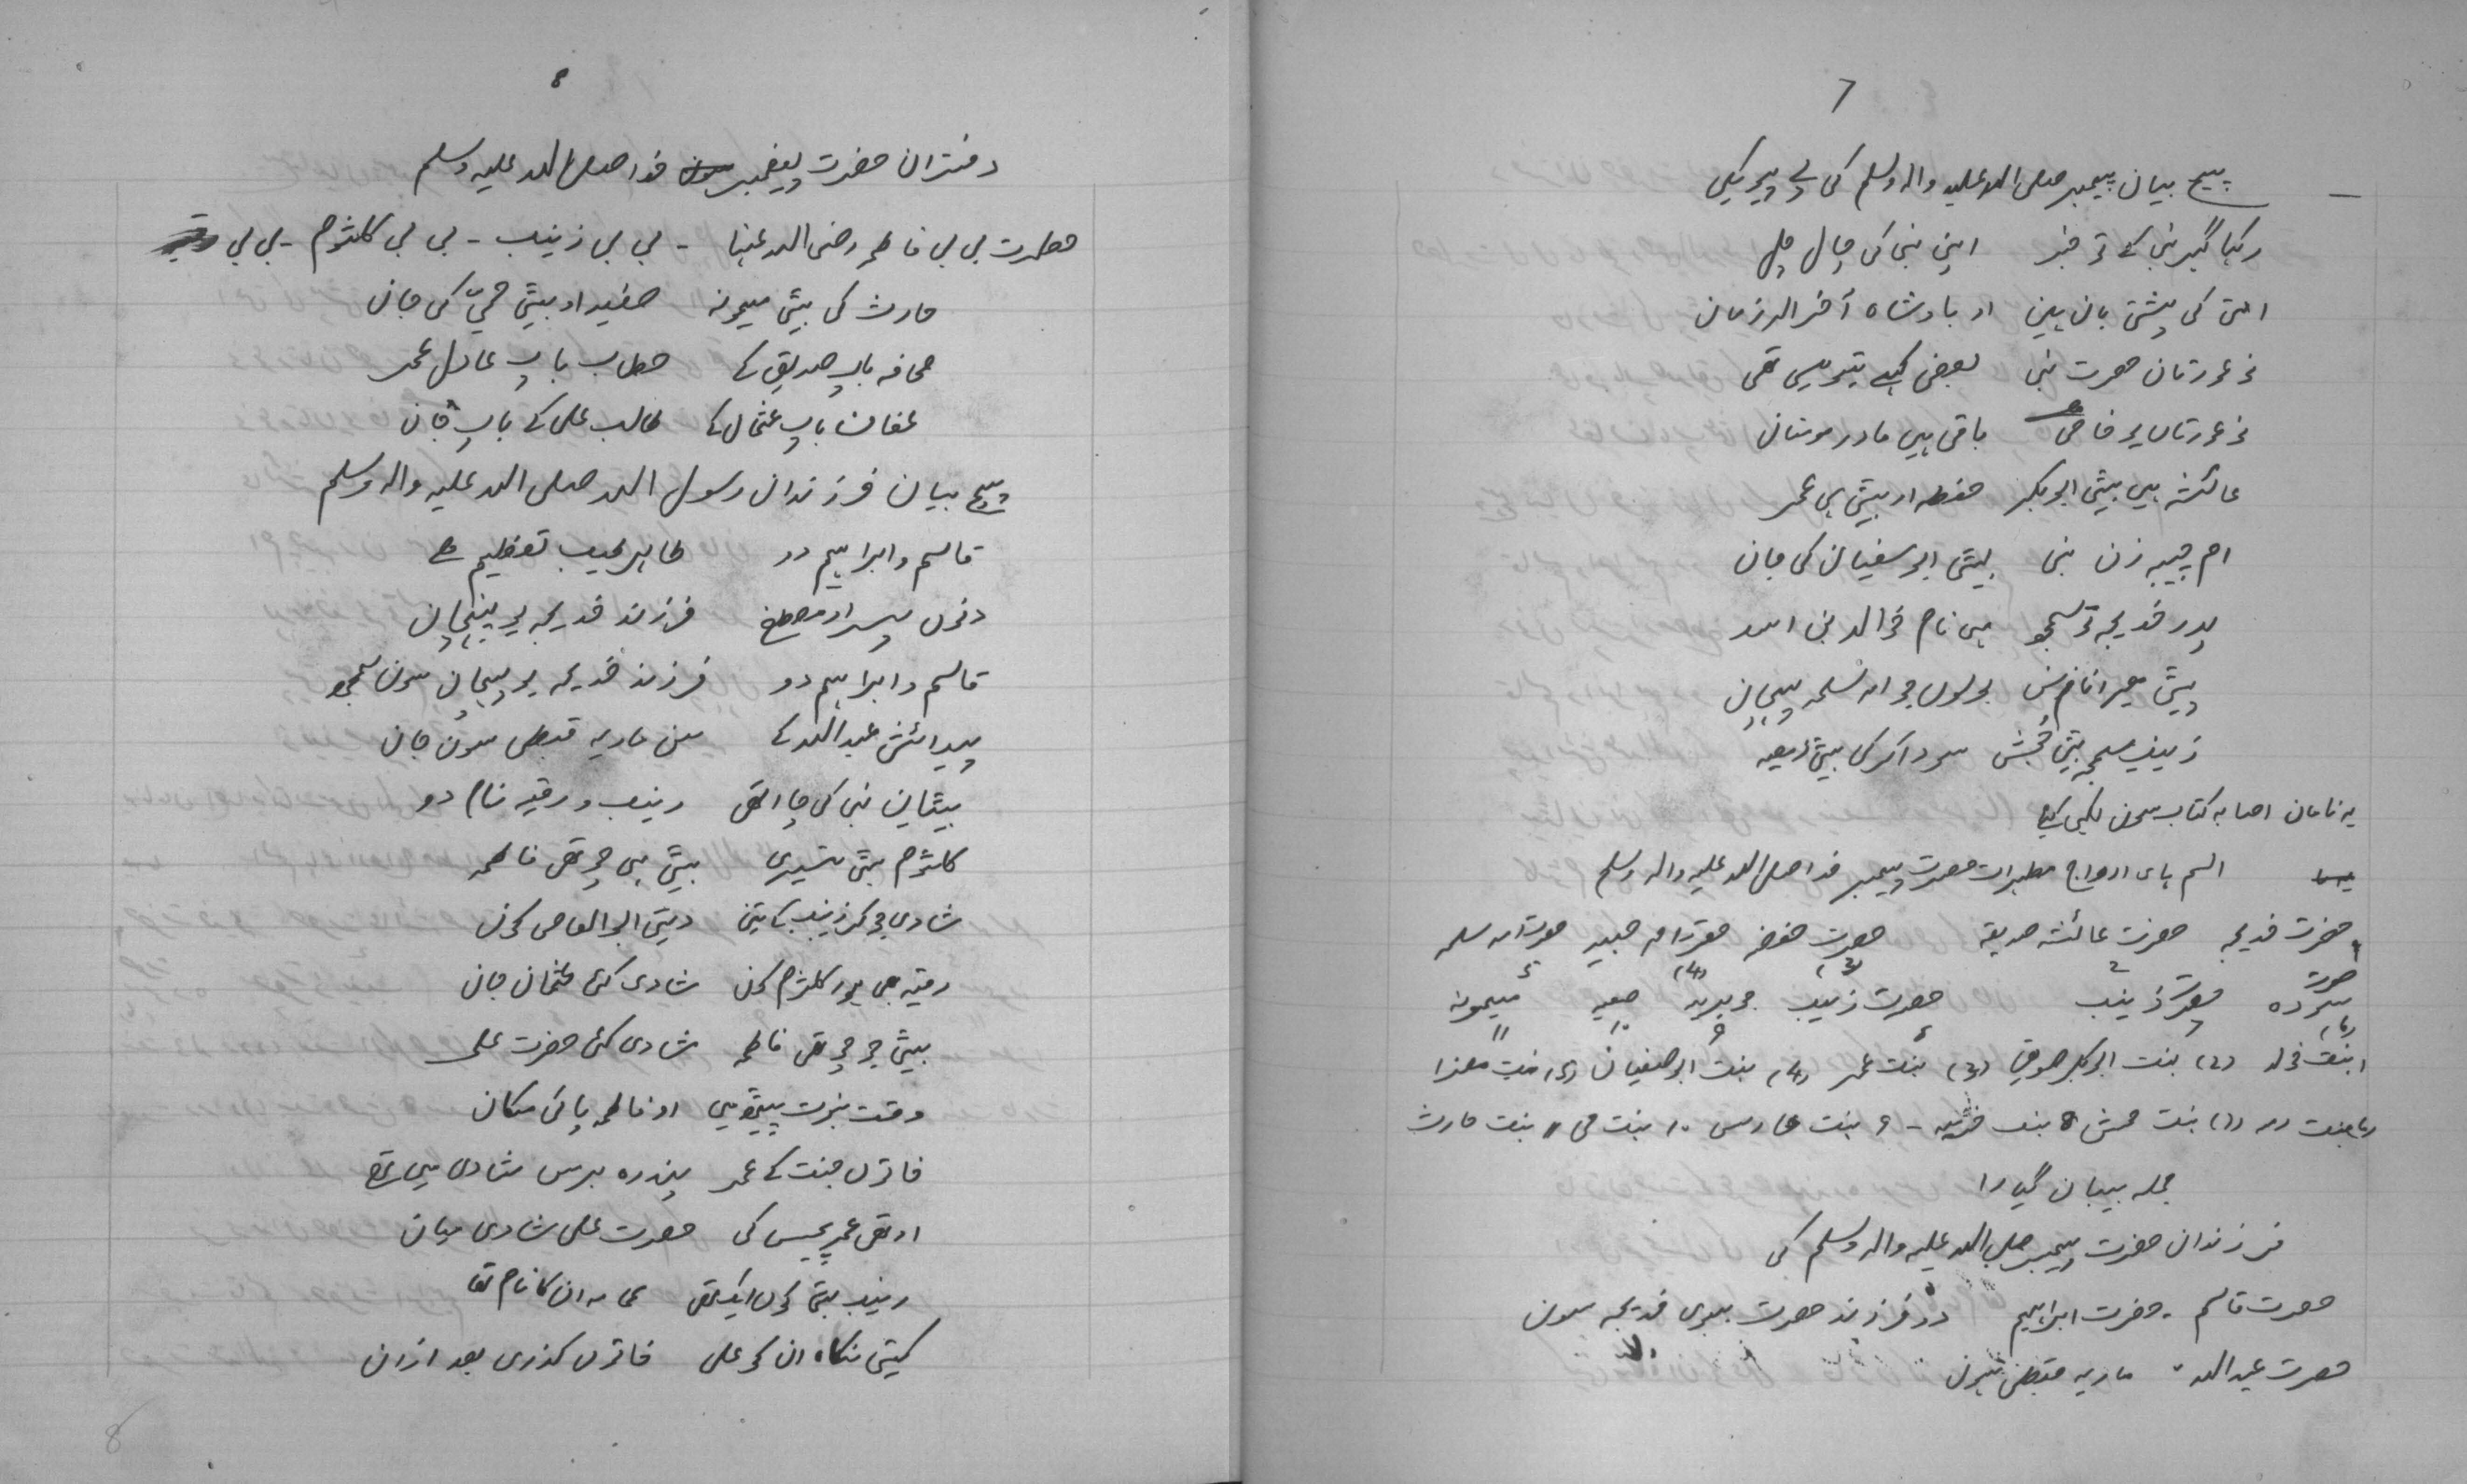 7
بیچ بیان پیمبر صلی اللہ علیہ والہ وسلم کی
رکہا گہر نبی کے تو خبر اپنی نبی کی چال چل
امتی کی پشتی بان ہین او بادشاہ آخر الزمان
نو عورتان حضرت نبی بعضی کہے بتویسی تھی
نو عورتاں یو خاص باقی ہیں مادر مومنان
عائشہ ہیں بیٹی ابوبکر حفصہ او بیٹی ہی عمر
ام حبیبہ زن نبی بیٹی ابو سفیان کی جان
پدر خدیجہ تو سمجو ہیں نام خوالد بنی اسد
بولوں جو ام سلمہ پیچان
زینب سمجہ بیٹی
یہ نامان اصابہ کتاب سون لکہی گیی
اسم ہای ازواج مطہرات حضرت پیمبر خدا صلی اللہ علیہ والہ وسلم
حضرت خدیجہ حضرت عائشہ صدیقہ حضرت حفصہ حضرت ام حبیبہ حضرت ام سلمہ
1 2 (3) (4) 5
حضرت
سودہ حضرت زینب حضرت زینب جویریہ صفیہ میمونہ
(6) 7 8 9 10 11
1 بنت خولد (2) بنت ابوبکر صدیق (3) بنت عمر (4) بنت ابو صفیان (5) بنت
بنت (7) بنت 8 بنت خزیمہ - 9 بنت حارس 10 بنت حی 11 بنت حارث
جملہ بیبیان گیارا
فرزندان حضرت پیمبر صلی اللہ علیہ والہ وسلم کی
حضرت قاسم - حضرت ابراہیم دو فرزند حضرت بیوی خدیجہ سون
حضرت عبداللہ ماریہ قبطی سون
8
دختران حضرت پیغمبر خدا صلی اللہ علیہ وسلم
حضرت بی بی فاطمہ رضی اللہ عنہا - بی بی زینب - بی بی کلثوم - بی بی رقیہ
حارث کی بیٹی میمونہ صفیہ او بیٹی حی کی جان
قحافہ باپ صدیق کے خطاب باپ عادل عمر
عفان باپ عثمان کے طالب علی کے باپ جان
بیچ بیان فرزندان رسول اللہ صلی اللہ علیہ والہ وسلم
قاسم و ابراہیم دو طاہر طیب تعظیم سے
دنوں پسر او مصطفی فرزند خدیجہ یو پنچان
قاسم و ابراہیم دو فرزند خدیجہ یو پیچان سون سمجو
پیدائش عبداللہ کے سن ماریہ قبطی سون جان
بیٹیاں نبی کی چار تھی زینب و رقیہ نام دو
کلثوم بیٹی تیسری بیٹی ہی چوتھی فاطمہ
شادی جو کر زینب کے تین دیتی ابو العاص کون
رقیہ بھی یور کلثوم کون شادی کئی عثمان جان
بیٹی جو چوتھی فاطمہ شادی کئی حضرت علی
وقت نبوت او فاطمہ پائی مکان
خاتون جنت کے عمر پندرہ برس شادی میں تھے
او تھی عمر پچیس کی حضرت علی شادی میان
زینب بیٹی کون ایک تھی امامہ ان کا نام تھا
کیتی نکاہ ان کو علی خاتون گذری بعد ازان
8